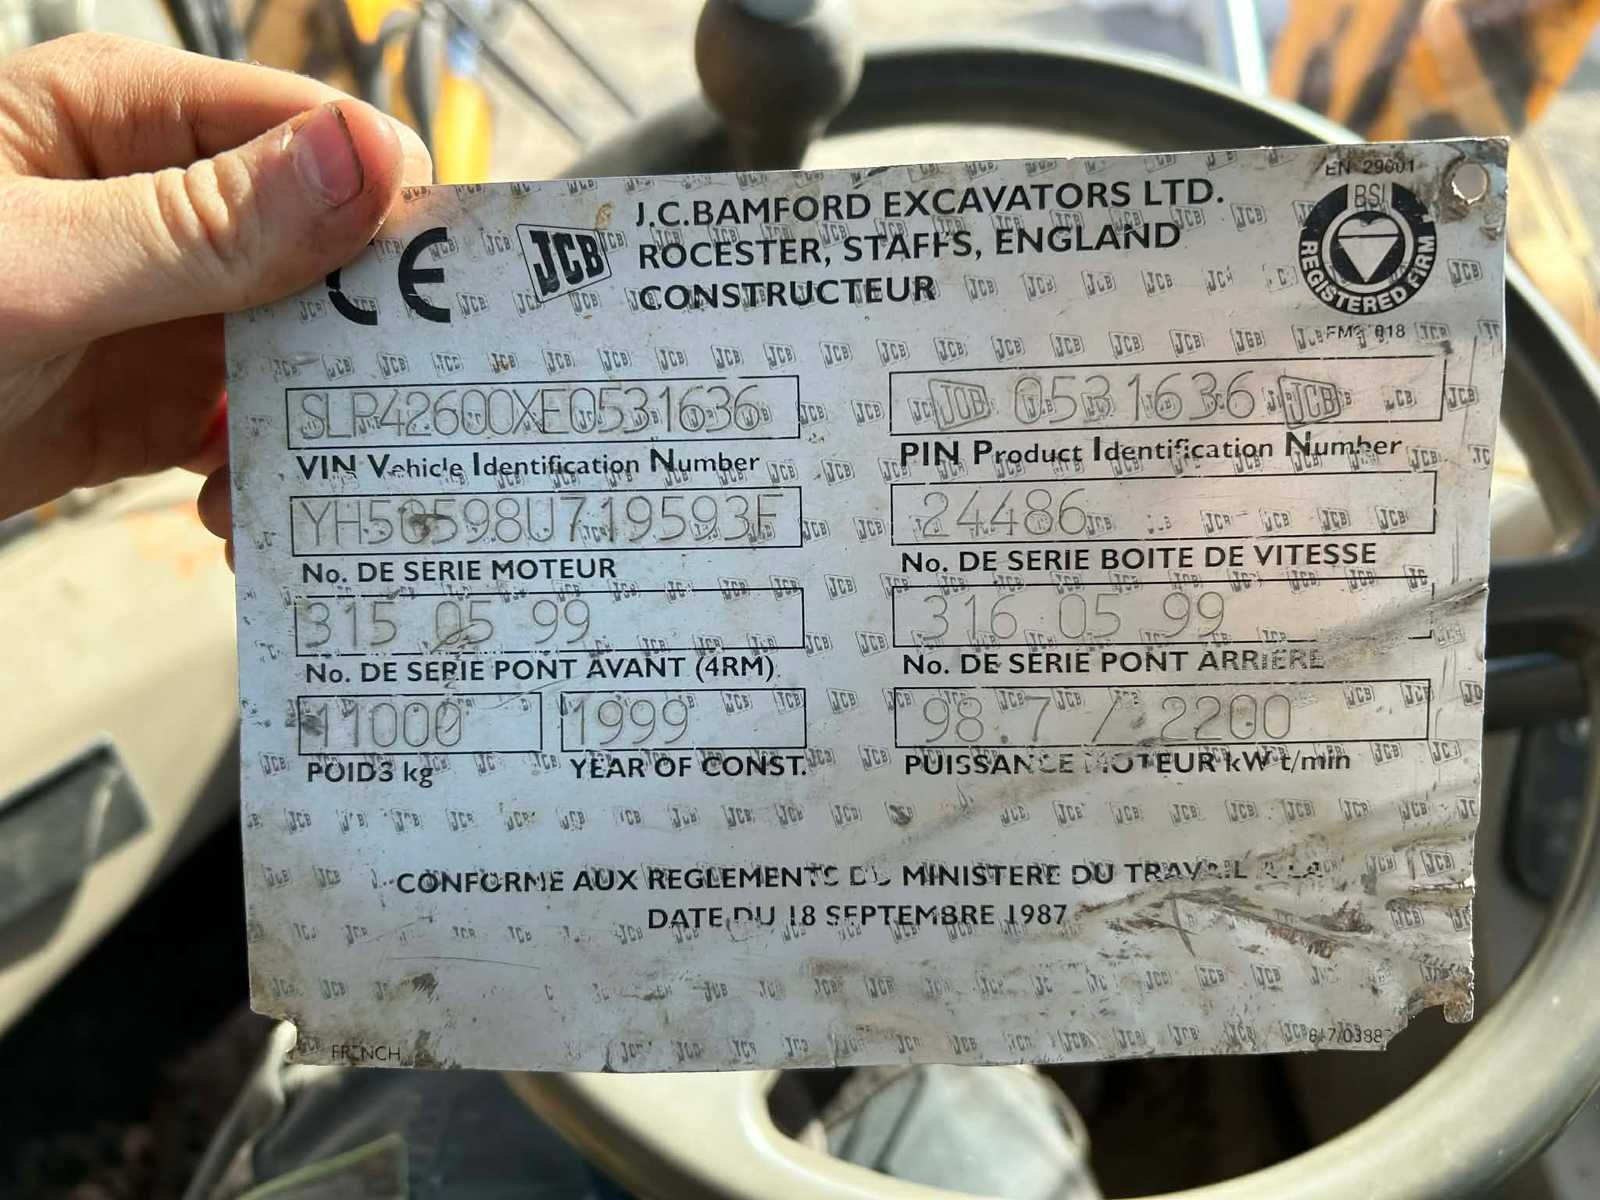 CE
JCB
J.C.BAMFORD EXCAVATORS LTD.
ROCESTER, STAFFS, ENGLAND
CONSTRUCTEUR
EN 29001
BSI
REGISTERED FIRM
018
SLP42600XE0531636
VIN Vehicle Identification Number
JCB 0531636 JCB
PIN Product Identification Number
YH50598U719593F
No. DE SERIE MOTEUR
24486
No. DE SERIE BOITE DE VITESSE
315 05 99
No. DE SERIE PONT AVANT (4RM)
316 05 99
No. DE SERIE PONT ARRIERE
11000
POIDS kg
1999
YEAR OF CONST.
98.7 / 2200
PUISSANCE MOTEUR kW t/min
CONFORME AUX REGLEMENTS DU MINISTERE DU TRAVAIL A LA
DATE DU 18 SEPTEMBRE 1987
FRENCH